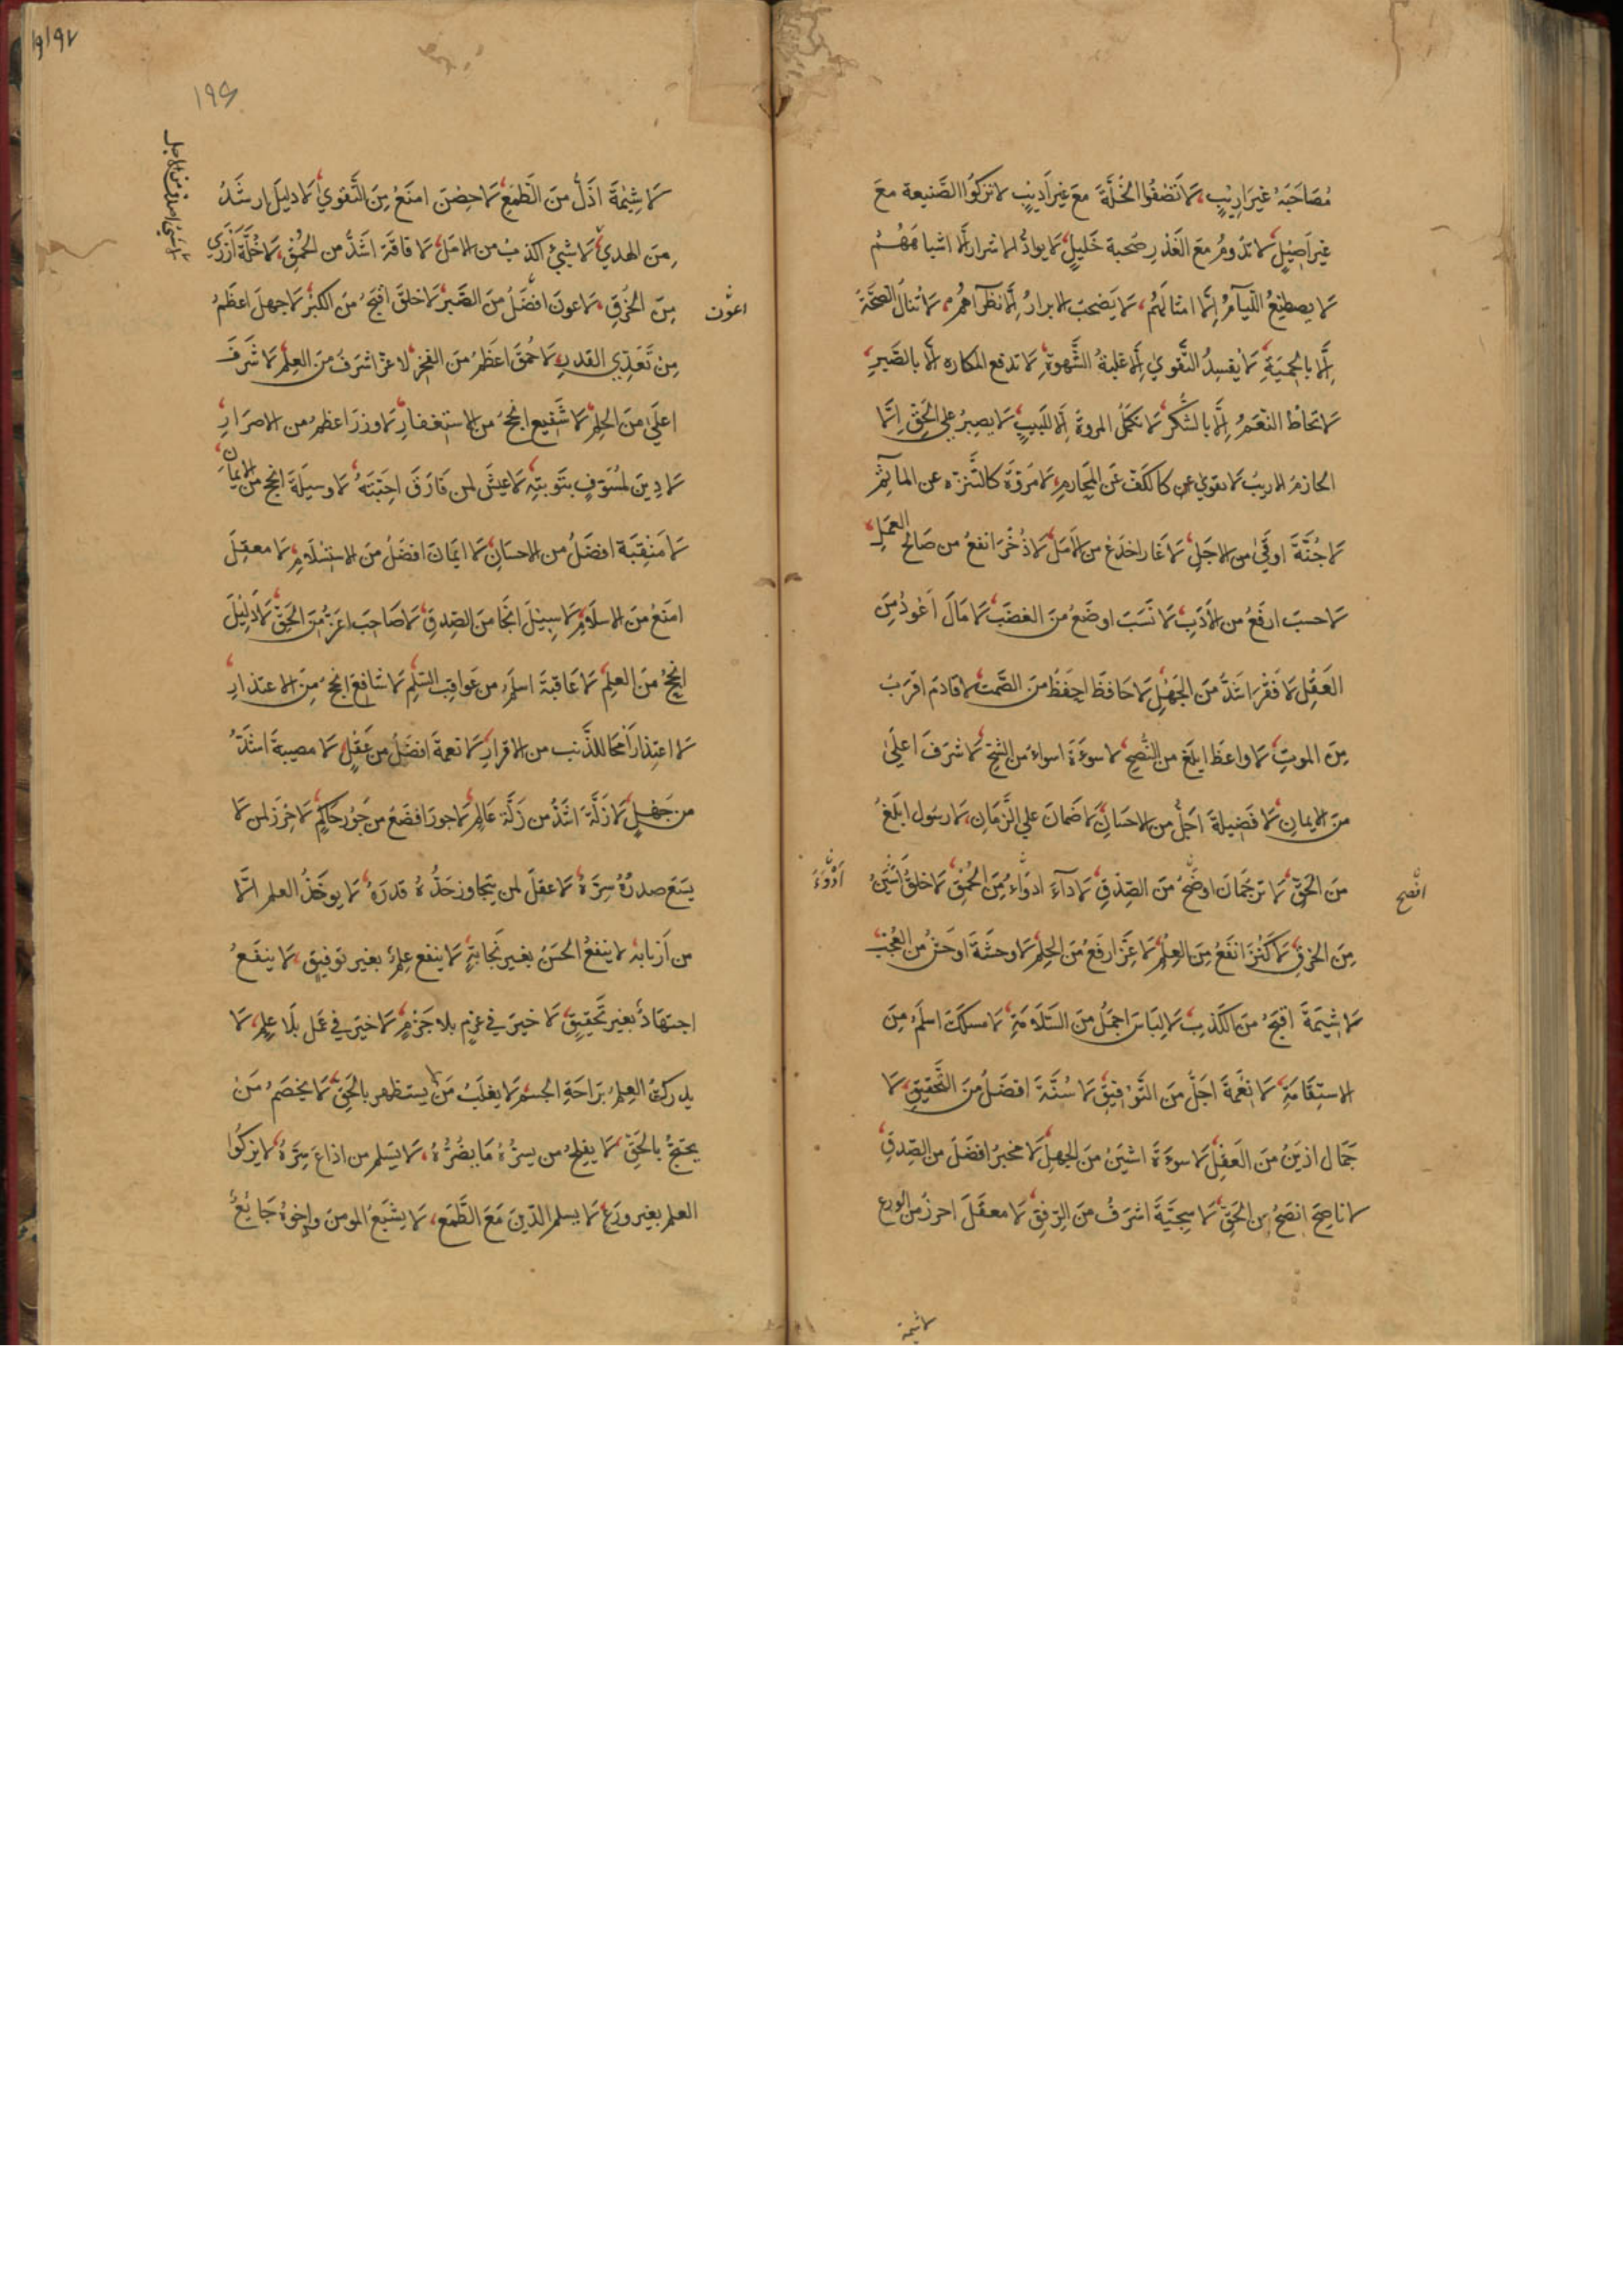 مُصَاحَبَةُ غيرَ ارِيْبٍ، لَا تَصْفُوا الخُلَّةَ مَعَ غيرِ اَدِيْبٍ لا تزكُوا الصَّنيعة مَعَ
غيرِ اَصِيْلٍ لا تدُومُ معَ الغَدْرِ صُحبة خَليلٍ لَا يوادُّ الاشرار اِلَّا اشباهَهُمْ
لَا يصطنِعُ اللِّيَامُ اِلَّا امثالَهُم، لَا يَصْحَبُ الابرارُ اِلَّا نظرآءهُم، لَا تنالُ الصِّحَّةُ
اِلَّا بالحِميَةِ لَا يُفسِدُ التَّقوي اِلَّا غلبةُ الشَّهوةِ لَا تدفع المكاره اِلَّا بالصَّبرِ
لَا تُحاطُ النِّعَمُ اِلَّا بالشُّكرِ لَا تكمُلُ المروةُ اِلَّا للَبيبٍ لَا يصبِرُ علي الحَقِّ اِلَّا
الحازمُ الاريبُ لَا تقوي كالكَفِّ عَنِ المَحَارِمِ، لَا مُرَوَّةَ كالتَّنزّه عن المآثِمِ
لَا جُنَّةَ اوقَيٰ من الاجَلِ لَا غَارَ اخدَعُ من الاَمَلِ لَا ذُخْرَ انفعُ من صَالح العَمَلِ
لَا حسبَ ارفَعُ من الاَدَبِ لَا نَسَبَ اوضَعُ مِنَ الغضَبِ لَا مالَ اَعْودُ مِنَ
العَقْلِ لَا فَقْرَ اشَدُّ مِنَ الجَهْلِ لَا حَافظَ احفَظُ مِنَ الصَّمتِ لا قادمَ اقرَبُ
مِنَ الموتِ لَا واعظَ ابلغَ من النُّصحِ لا سوءَةَ اسواء مِن الشُّحِّ لَا شرَفَ اعلَيٰ
مِنَ الايمانِ لَا فَضِيلةَ اجَلُّ من الاحسَانِ لَا ضَمانَ علي الزَّمَانِ، لَا رسُول ابلَغُ
مِنَ الحَقِّ لَا ترجُمَانَ اوضَحُ مِنَ الصِّدقِ لَا دآءَ ادوَاءُ مِنَ الحُمْقِ لَا خلقَ اَشْيَنُ
ادْوَءَ
افصح
مِنَ الخرقِ لَا كَنْزَ انفَعُ مِنَ العِلْمِ لَا عِزَّ ارفَعُ مِنَ الحِلْمِ لَا وحشَةَ اوحَشُ من العُجْبِ
لَا شِيمَةَ اقبَحُ مِنَ الكَذِبِ لَا لِبَاسَ اجمَلُ مِنَ السَّلَامَةِ لَا مسلَكَ اسلَمُ مِنَ
الاستِقَامَةِ لَا نِعْمَةَ اجَلُّ مِنَ التَّوْفِيقِ لَا سُنَّةَ افضَلُ مِنَ التَّحقيقِ لَا
جَمَال ازيَنُ مِنَ العَقْلِ لَا سوءَةَ اشيَنُ مِنَ الجهلِ لَا مخبرَ افضَلَ من الصِّدقِ
لا ناصِحَ انصَحُ من الحَقِّ لَا سجِيَّةَ اشرَفُ مِنَ الرِّفقِ لَا معقَلَ احرزُ من الورع
لا شيمة
١٩٦
لَا شِيْمَةَ اَذَلُّ مِنَ الطَّمَعِ لَا حِصْنَ امنَعُ مِنَ التَّقوي لَا دليلَ ارشَدُ
مِنَ الهدي لَا شيئَ اكذبُ من الاملِ لَا فاقَةَ اشَدُّ من الحُمْقِ لَا خُلَّةَ اَزْرَي
مِنَ الخُرْقِ لَا عونَ افضَلُ مِنَ الصَّبرِ لَا خلقَ اقبَحُ مِنَ الكِبْرِ لَا جهلَ اعظَمُ
اعوَن
مِنْ تَعَدّي القَدرِ لَا حُمقَ اعظَمُ مِنَ الفخرِ لا عِزَّ اشرَفُ مِنَ العِلْمِ لَا شَرَفَ
اعلَيٰ مِنَ الحِلمِ لَا شَفِيع انجَحُ مِن الاستغفارِ لَا وِزرَ اعظمُ من الاصرَارِ
لَا دِينَ لمُسَوِّفٍ بتَوبتِهِ لَا عَيشَ لمن فَارَقَ احِبَّتَهُ لَا وسيلَةَ انجَحُ مِنَ الايمَانِ
لَا مَنْقِبَةَ افضَلُ من الاحسَانِ لَا ايمَانَ افضَلُ مِنَ الاستِسْلَامِ لَا معقِلَ
امنَعُ مِنَ الاسلَامِ لَا سبِيْلَ انجَا مِنَ الصِّدقِ لَا صَاحِبَ اعَزُّ مِنَ الحَقِّ لَا دَلِيْلَ
انجَحُ مِنَ العِلْمِ لَا عَاقبةَ اسلَمُ من عَواقِبِ السِّلْمِ لَا شافِعَ انجَحُ مِنَ الاعتذارِ
لَا اعتِذارَ اَمحَا للذَّنبِ من الاقرارِ لَا نعمةَ افضَلُ من عَقْلٍ لَا مصيبةَ اشَدُّ
من جَهْلٍ لَا زَلَّةَ اشَدُّ من زَلَّةِ عَالِمٍ لَا جورَ افضَعُ من جَوْرِ حَاكِمٍ لَا حِرْزَ لمن لَا
يَسَعُ صدرُهُ سِرَّهُ لَا عقلَ لمن يتجاوزحَدُّهُ قدرَهُ لَا يوخَذُ العلم اِلَّا
من اَربَابه لا ينفعُ الحُسْنُ بغيرِ نَجَابةٍ لَا ينفع عِلمٌ بغير توفيقٍ، لَا ينفَعُ
اجتهَادٌ بغير تحقِيقٍ لَا خيرَ في عزمٍ بلا حَزْمٍ لَا خيرَ في عَمَل بلَا عِلمٍ، لَا
يدرَكُ العِلمُ برَاحَةِ الجسمِ لَا يغلَبُ مَنْ يستظهر بالحَقِّ لَا يخصَمُ مَنْ
يحتجُّ بالحَقِّ، لَا يفلِحُ من يسرُّهُ مَا يضُرُّهُ، لَا يَسْلمُ من اذاعَ سِرَّهُ لَا يزكُوا
العلم بغير ورَعٍ لَا يسلم الدّينَ مَعَ الطَّمَعِ، لَا يشبَعُ المومنُ واخوهُ جَائعٌ